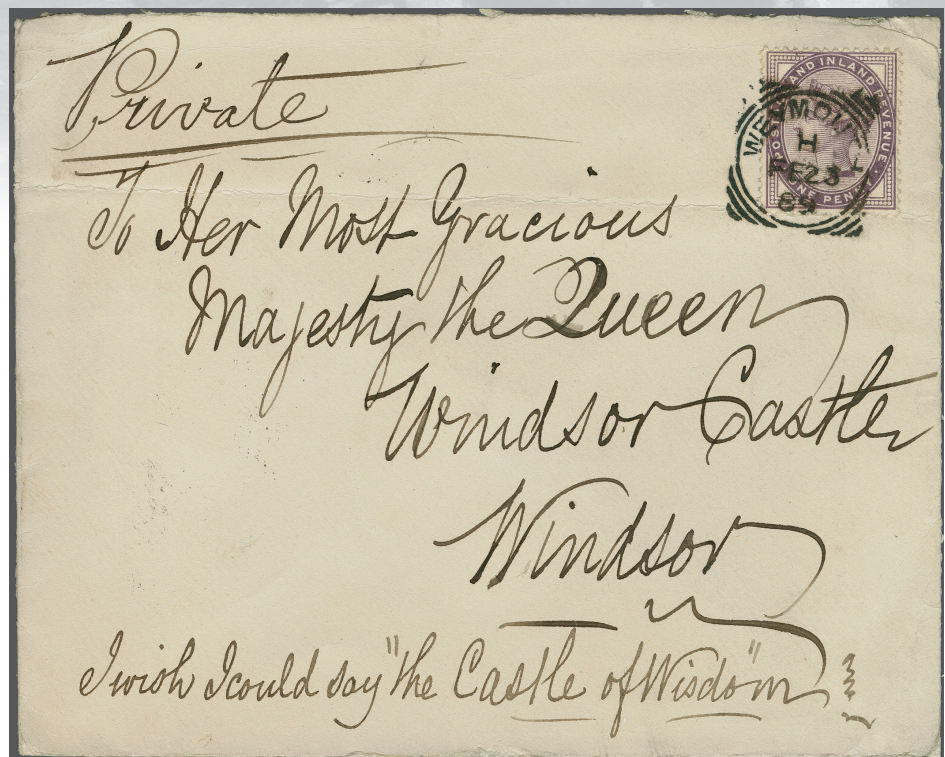 Private
POSTAGE AND INLAND REVENUE
ONE PENNY
WEYMOUTH
H
FE 23
89
To Her Most Gracious
Majesty the Queen
Windsor Castle
Windsor
I wish I could say "the Castle of Wisdom"